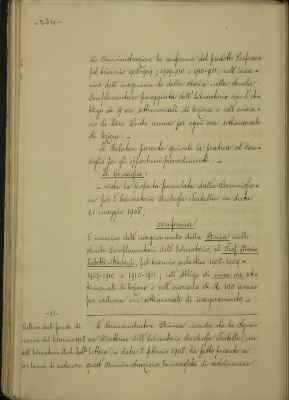 - 234 -
di Amministrazione la conferma del predetto Professore
pel triennio 1908-909; 1909-910 e 910-911, coll'inca-
rico dell'insegnamento della Storia nella scuola
Complementare pareggiata dell'Educatorio con l'ob-
bligo di 9 ore settimanali di lezione e coll'onora-
rio di Lire Cento annue per ogni ora settimanale
di lezione. -
Il Relatore presenta quindi la pratica al Con-
siglio per gli opportuni provvedimenti. -
Il Consiglio
- vista la proposta formulata dalla Commissio-
ne per l'Educatorio in data
21 maggio 1908;
conferma
l'incarico dell'insegnamento della Storia nelle
classi Complementari dell'Educatorio, al Prof. Mario
pel triennio scolastico 1908-1909-
1909-1910 e 1910-1911; coll'obbligo di nove ore set-
timanali di lezione e coll'onorario di L. 100 annue
per caduna ora settimanale di insegnamento. -
- 11 -
L'Amministratore ricorda che la Signo-
ra Direttrice dell'Educatorio con
lettera in data 8 febbraio 1908, ha fatto presente a
quest'Amministrazione la necessità di suddividere